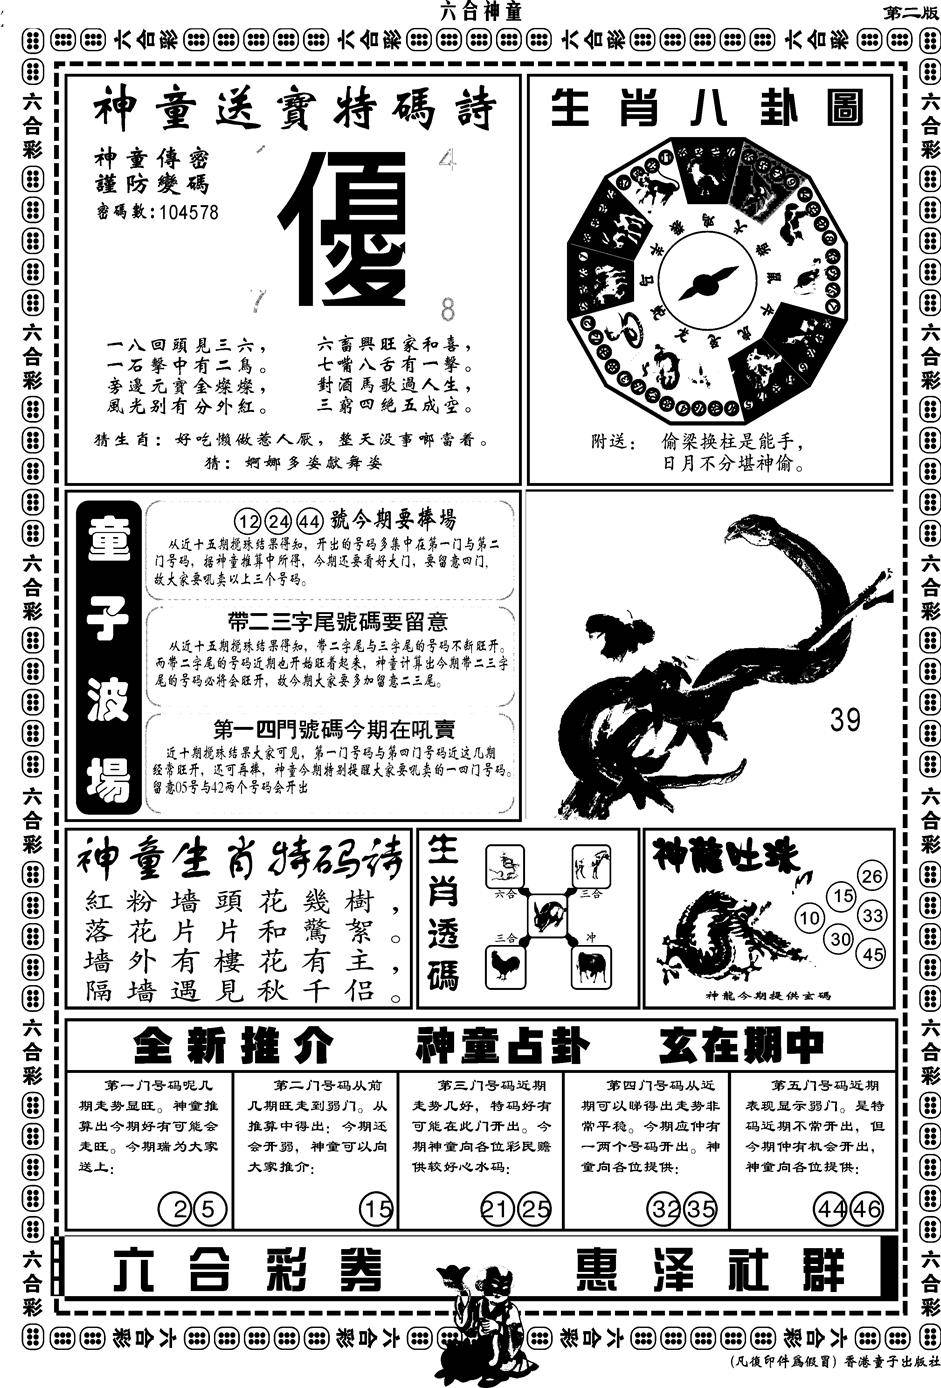 六合神童
第二版
六合彩 六合彩 六合彩 六合彩
六合彩
六合彩
六合彩
六合彩
六合彩
六合彩
六合彩
六合彩
六合彩
六合彩
六合彩
六合彩
神童送寶特碼詩
神童傳密
謹防變碼
密碼數:104578
優
4
7
8
一八回頭見三六，
一石擊中有二鳥。
旁邊元寶金燦燦，
風光别有分外紅。
六畜興旺家和喜，
七嘴八舌有一擊。
對酒馬歌過人生，
三窮四絶五成空。
猜生肖：好吃懒做惹人厭，整天没事啷當着。
猜：婀娜多姿獻舞姿
生肖八卦圖
附送： 偷梁换柱是能手，
日月不分堪神偷。
童子波場
12 24 44 號今期要捧場
从近十五期搅珠结果得知，开出的号码多集中在第一门与第二
门号码，据神童推算中所得，今期还要看好大门，要留意四门，
故大家要吼卖以上三个号码。
帶二三字尾號碼要留意
从近十五期搅珠结果得知，带二字尾与三字尾的号码不断旺开。
而带二字尾的号码近期也开始旺着起来，神童计算出今期带二三字
尾的号码必将会旺开，故今期大家要多加留意二三尾。
第一四門號碼今期在吼賣
近十期搅珠结果大家可见，第一门号码与第四门号码近这几期
经常旺开，还可再捧，神童今期特别提醒大家要吼卖的一四门号码。
留意05号与42两个号码会开出
39
神童生肖特码诗
紅粉墻頭花幾樹，
落花片片和驚絮。
墻外有樓花有主，
隔墻遇見秋千侣。
生肖透碼
六合 三合
三合 冲
神龍吐珠
26
15
10 33
30
45
神龍今期提供玄碼
全新推介 神童占卦 玄在期中
第一门号码呢几
期走势显旺。神童推
算出今期好有可能会
走旺。今期瑞为大家
送上：
2 5
第二门号码从前
几期旺走到弱门。从
推算中得出：今期还
会开弱，神童可以向
大家推介：
15
第三门号码近期
走势几好，特码好有
可能在此门开出。今
期神童向各位彩民赐
供较好心水码：
21 25
第四门号码从近
期可以睇得出走势非
常平稳。今期应仲有
一两个号码开出。神
童向各位提供：
32 35
第五门号码近期
表现显示弱门。是特
码近期不常开出，但
今期仲有机会开出，
神童向各位提供：
44 46
六合彩券 惠泽社群
六合彩 六合彩 六合彩 六合彩
(凡復印件爲假冒) 香港童子出版社